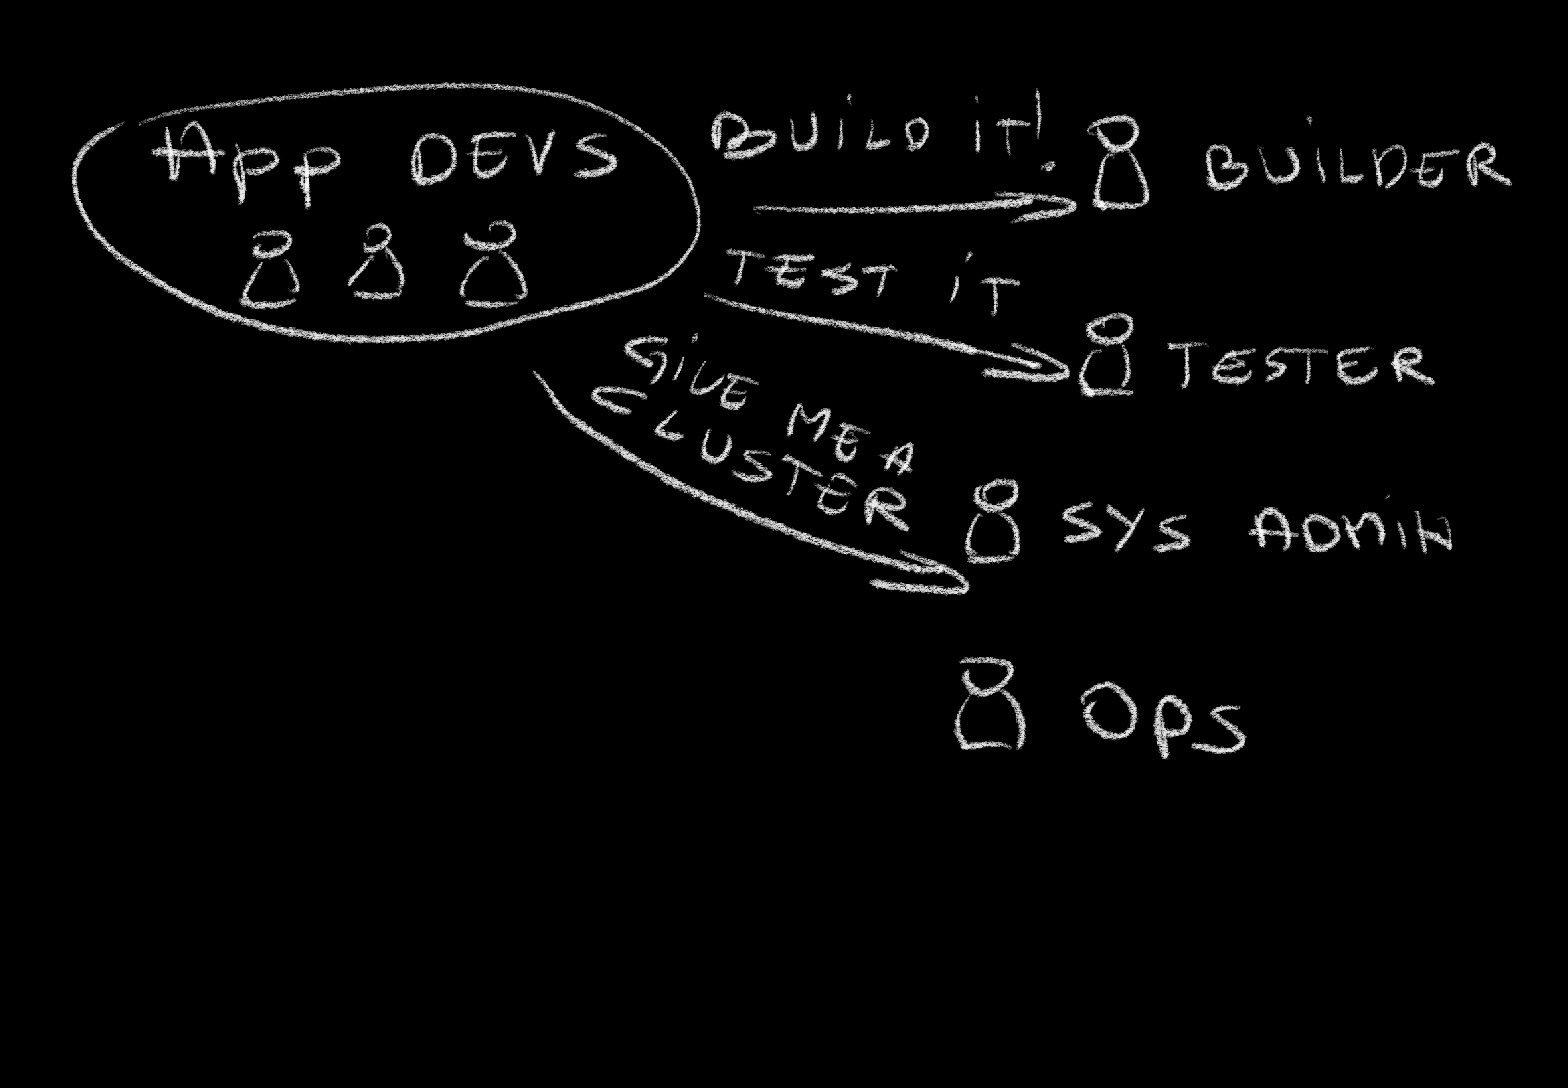 App DEVS
BUiLD iT!
BUiLDER
TEST iT
TESTER
GiVE ME A
CLUSTER
SYS ADMiN
OpS